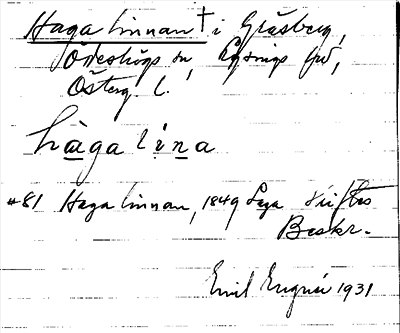 Haga linnan † i Gräsberg,
Ödeshögs sn, Lysings hd,
Österg. l.
hàga lina
#81 Haga linnan, 1849 Laga skiftes
Beskr.
Emil Engnér 1931